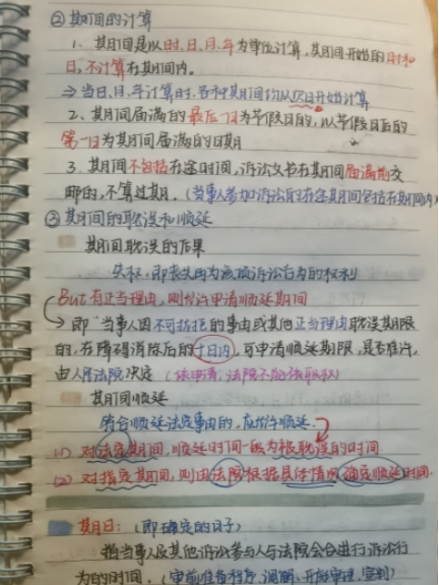 ②期间的计算
1、期间是以时、日、月、年为单位计算,期间开始的时和
日,不计算在期间内。
⇒当日、月、年计算时,各种期间均从次日开始计算
2、期间届满的最后一日为节假日的,以节假日后的
第一日为期间届满的日期
3、期间不包括在途时间,诉讼文书在期间届满前交
邮的,不算过期。(当事人参加诉讼的在途期间包括在期间内)
③期间的耽误和顺延
期间耽误的后果
失权,即丧失再为该项诉讼行为的权利
But有正当理由,则允许申请顺延期间
→即"当事人因不可抗拒的事由或其他正当理由耽误期限
的,在障碍消除后的十日内,可申请顺延期限,是否准许,
由人民法院决定(依申请,法院不能依职权)
期间顺延
符合顺延法定事由的,应准许顺延.
(1) 对法定期间,顺延时间一般为被耽误的时间.
(2) 对指定期间,则由法院根据具体情况确定顺延时间.
期日:(即确定的日子)
指当事人及其他诉讼参与人与法院会合进行诉讼行
为的时间.(审前准备程序、调解、开始审理、宣判)